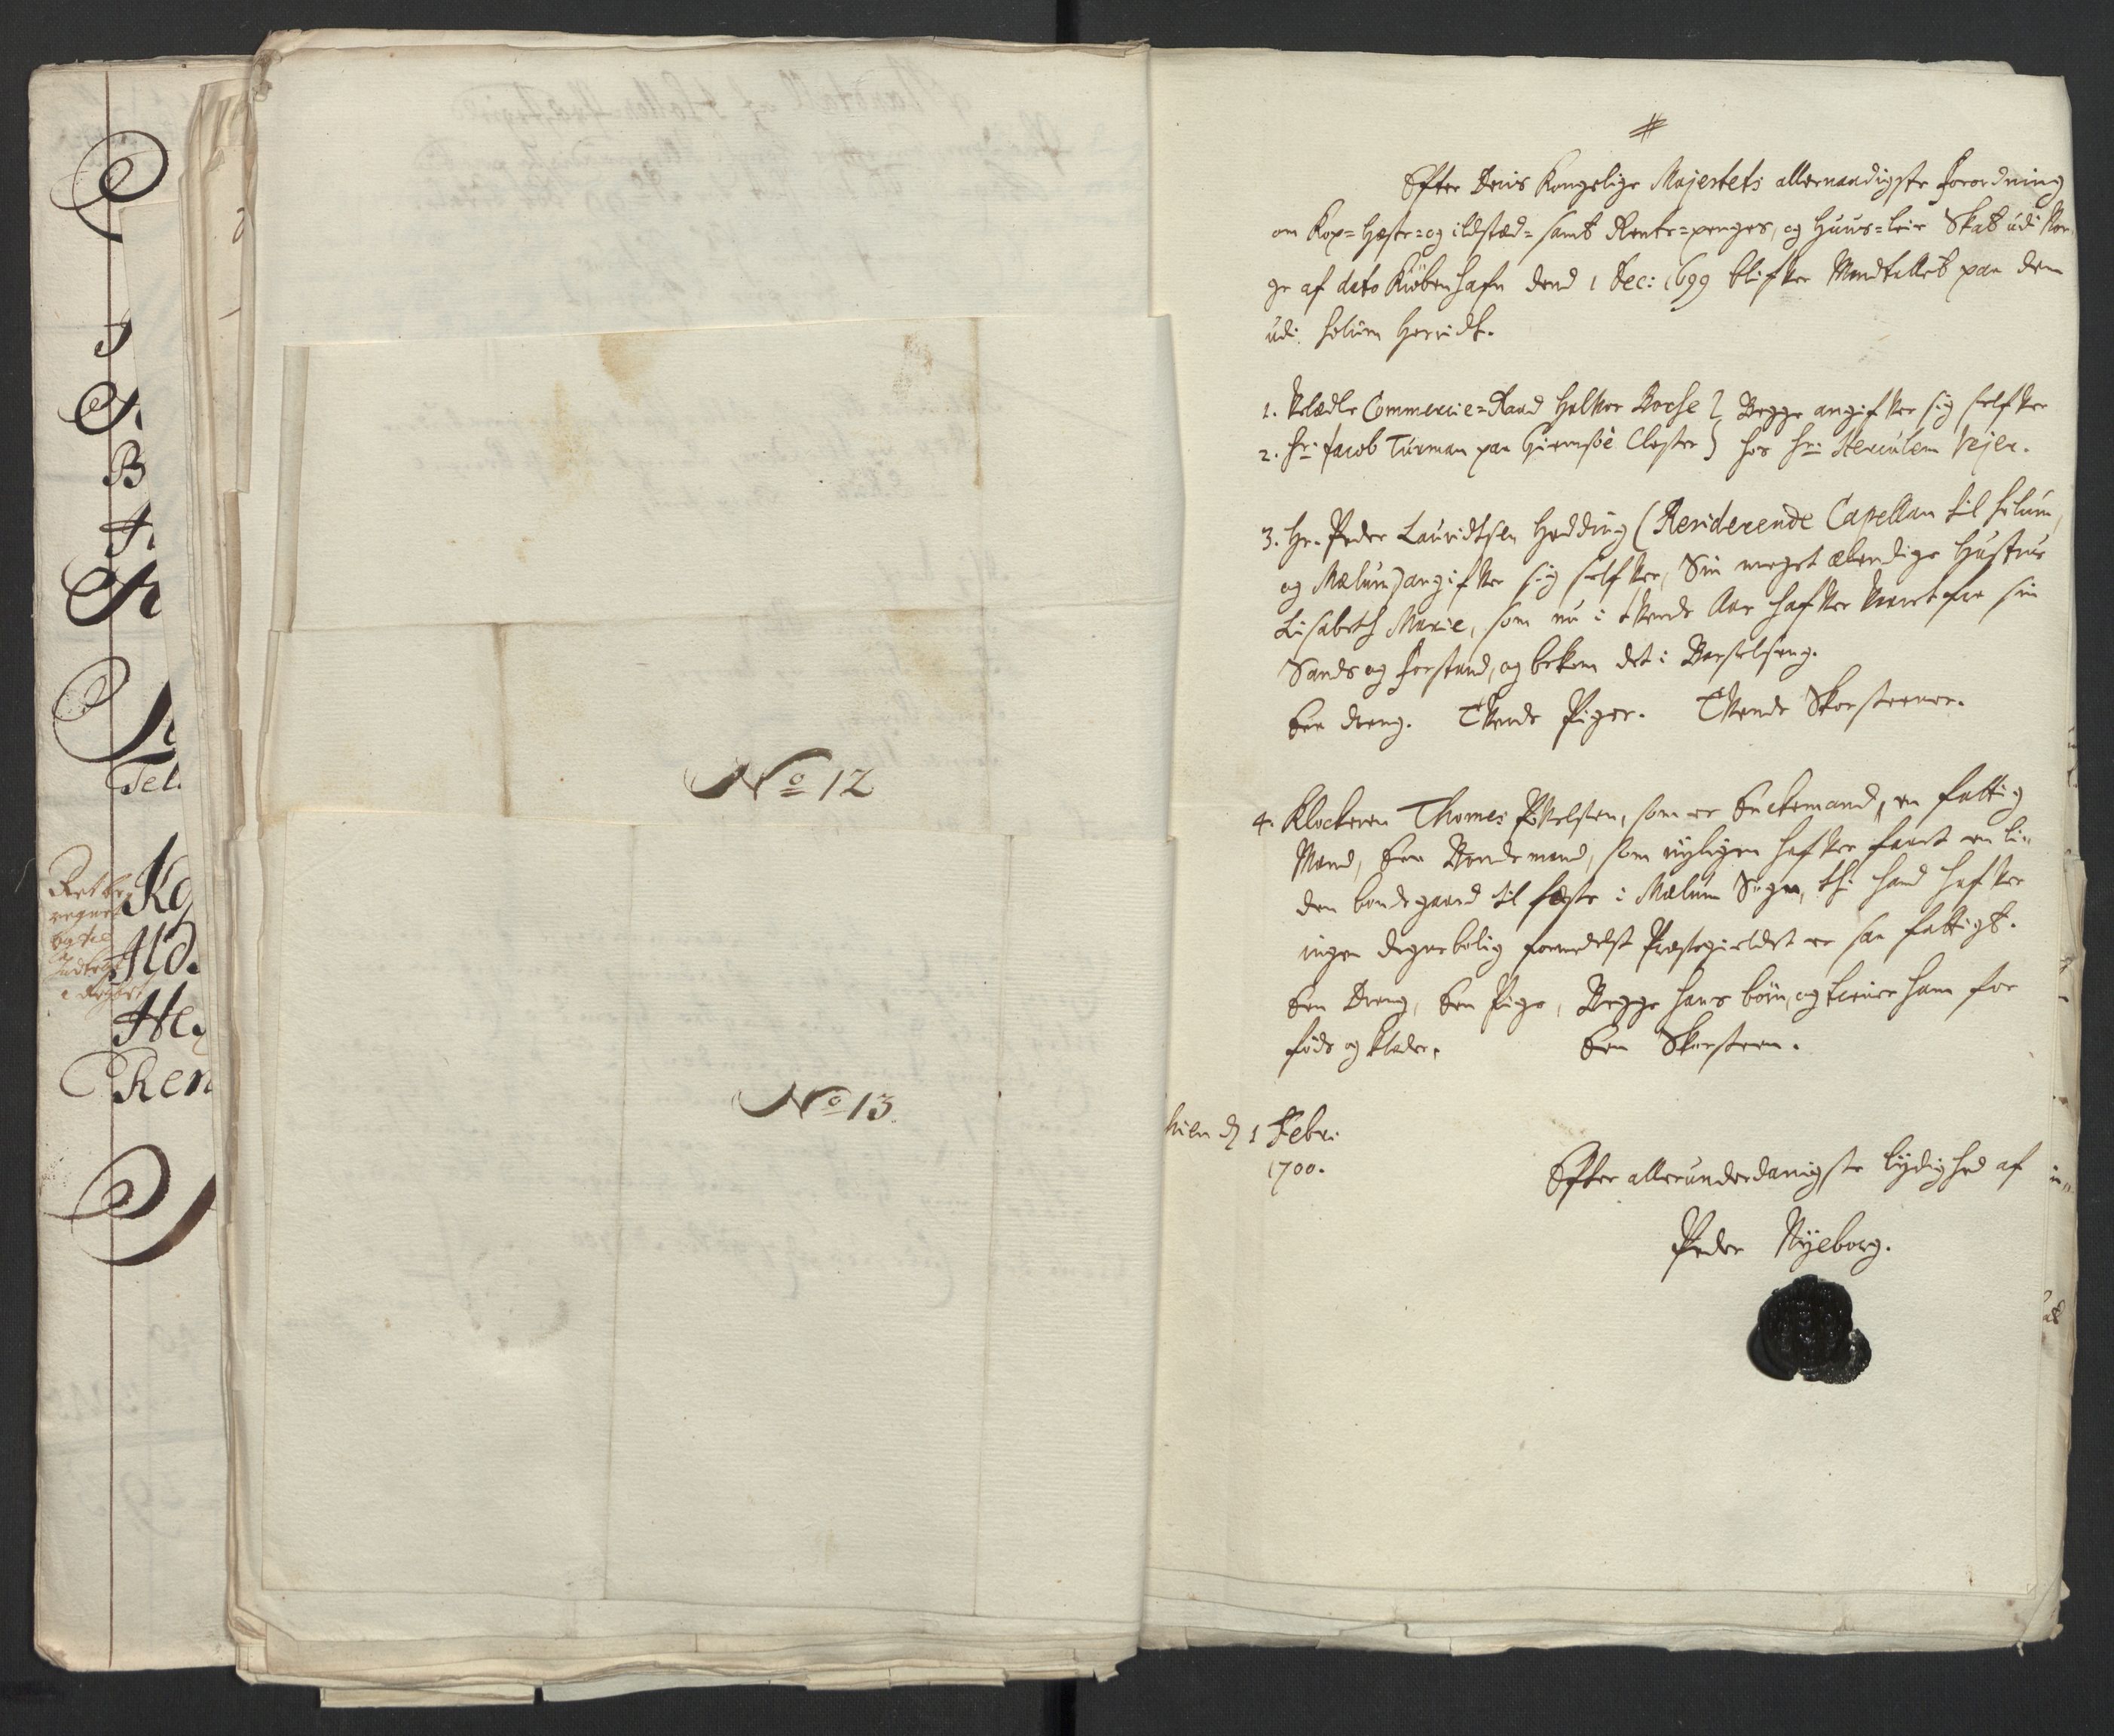 Tel.
Ko
Ild.
He
Ren
No 12
No 13.
Efter Deris Kongelige Majestets allernaadigste forordning
om Kop= Hæste= og ildsted= samt Rente=penges, og Huus=leie Skat udi Nor¬
ge af dato Kiøbenhafn dend 1 Dec: 1699 blifver Mandtallet paa dem
udi Solum Herridt.
1. Velædle Commercie=Raad Halvor Borse } Begge angifver sig selfver
2. Hr: Jacob Turman paa Giemsøe Closter } hos Hr: Herculem Vejer.
3. Hr. Peder Lauridtsen Hedding (Residerende Capellan til Solum,
og Mælum) angifver sig selfver, Sin meget elendige Hustrue
Lisabeth Marie, som nu i tvende Aar hafver veret fra sin
Sands og forstand, og bekom det i Barselseng.
Een dreng. Tvende Piger. Tvende Skorsteener.
4. Klockeren Thomes, som er Enckemand, en fattig
Mand, Een Bondemand, som nyligen hafver faaet en li¬
den bondegaard til feste i Mælum Sogn, thi hand hafver
ingen degnebolig formedelst Præstegieldet er saa fattigt.
Een Dreng, Een Pige, Begge hans børn, og tiener ham for
føde og klæder. Een Skorsteen.
Schien dn 1 Febr:
1700.
Efter allerunderdanigste lydighed af
Peder Nyeborg.